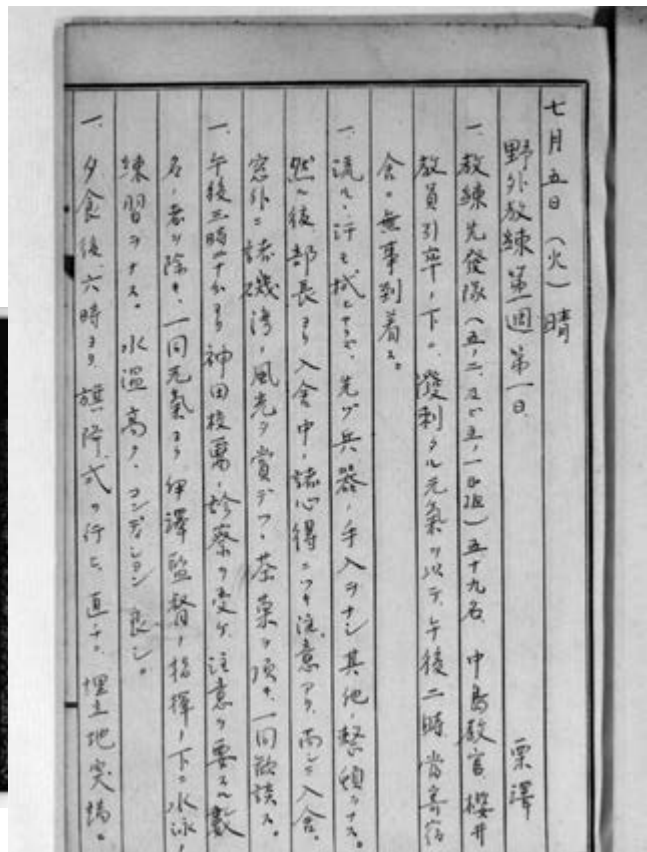 七月五日（火）晴
野外教練第一週第一日、 栗澤
一、教練先發隊（五ノ二、及ビ五ノ一ノ組）五十九名、中島教官櫻井
教員引率ノ下ニ、溌剌タル元氣ヲ以テ、午後二時當寄宿
舎ニ無事到着ス。
一、流ルヽ汗モ拭ヒアヘズ、先ヅ兵器ノ手入ヲナシ其他ノ整頓ヲナス。
然ル後部長ヨリ入舎中ノ諸心得ニツキ注意アリ、而シテ入舎、
窓外ニ諸磯湾ノ風光ヲ賞デツヽ茶菓ヲ頂キ、一同歓談ス。
一、午後三時二十分ヨリ神田校醫ノ診察ヲ受ケ、注意ヲ要スル数
名ノ者ヲ除キ、一同元氣ヨク、伊澤監督ノ指揮ノ下ニ水泳ノ
練習ヲナス。水温高ク、コンディション良シ。
一、夕食後、六時ヨリ旗降式ヲ行ヒ、直チニ埋立地突端ニ